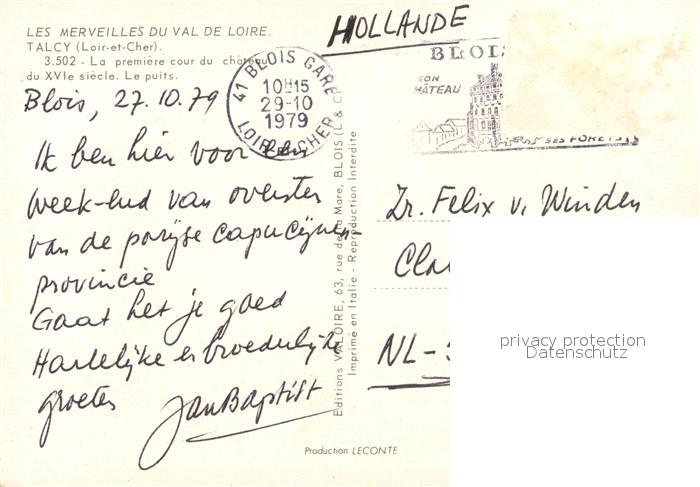 LES MERVEILLES DU VAL DE LOIRE.
TALCY (Loir-et-Cher).
3.502 - La première cour du château
du XVIe siècle. Le puits.
HOLLANDE
41 BLOIS GARE
10H15
29-10
1979
LOIR-ET-CHER
BLOIS
SON
CHÂTEAU
SES FORÊTS
Blois, 27.10.79
Ik ben hier voor
week-end van oversten
van de parijse capucijnen-
provincie
Gaat het je goed
Hartelijke en broederlijke
groeten Jan Baptist
Editions VALOIRE, 63, rue de la Mare, BLOIS (L & C)
Imprimé en Italie - Reproduction Interdite
Zr. Felix v. Winden
Cla
NL-
privacy protection
Datenschutz
Production LECONTE